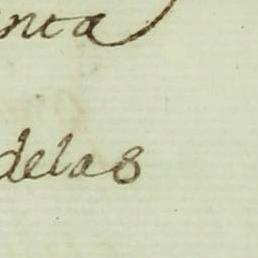 nta
delas